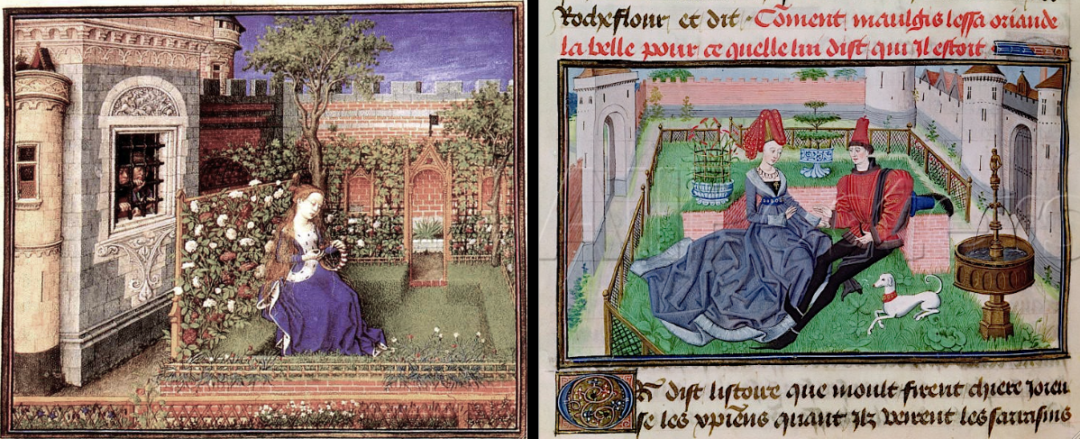 Rocheflour et dit · Coment maulgis lessa oriande
la belle pour ce quelle lui dist qui il estoit
OR dist listoire que moult firent chiere joieu
se les xpiens quant ilz veirent les sarrasins